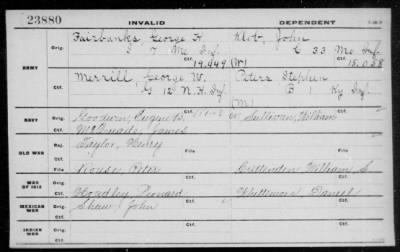 23880
INVALID
DEPENDENT
ARMY
Orig.
Fairbanks, George H.
Klob, John
7 Me Inf
C 33 Mo Inf
Ctf.
19,449 (W)
Ctf.
15,058
Orig.
Merrill, George W.
Peters Stephen
G 12 N.H. Inf
B 1 Ky Inf
Ctf.
(M)
NAVY
Orig.
Goodwin, Augusta
Sullivan, William
Ctf.
McQuade, James
OLD WAR
Orig.
Taylor, Henry
Ctf.
File
File
WAR OF 1812
Orig.
Rouse, Peter
Crittenden William S
Ctf.
Hoadley Leonard
Whittimore Daniel
MEXICAN WAR
Orig.
Shaw, John
Ctf.
INDIAN WAR
Orig.
Ctf.